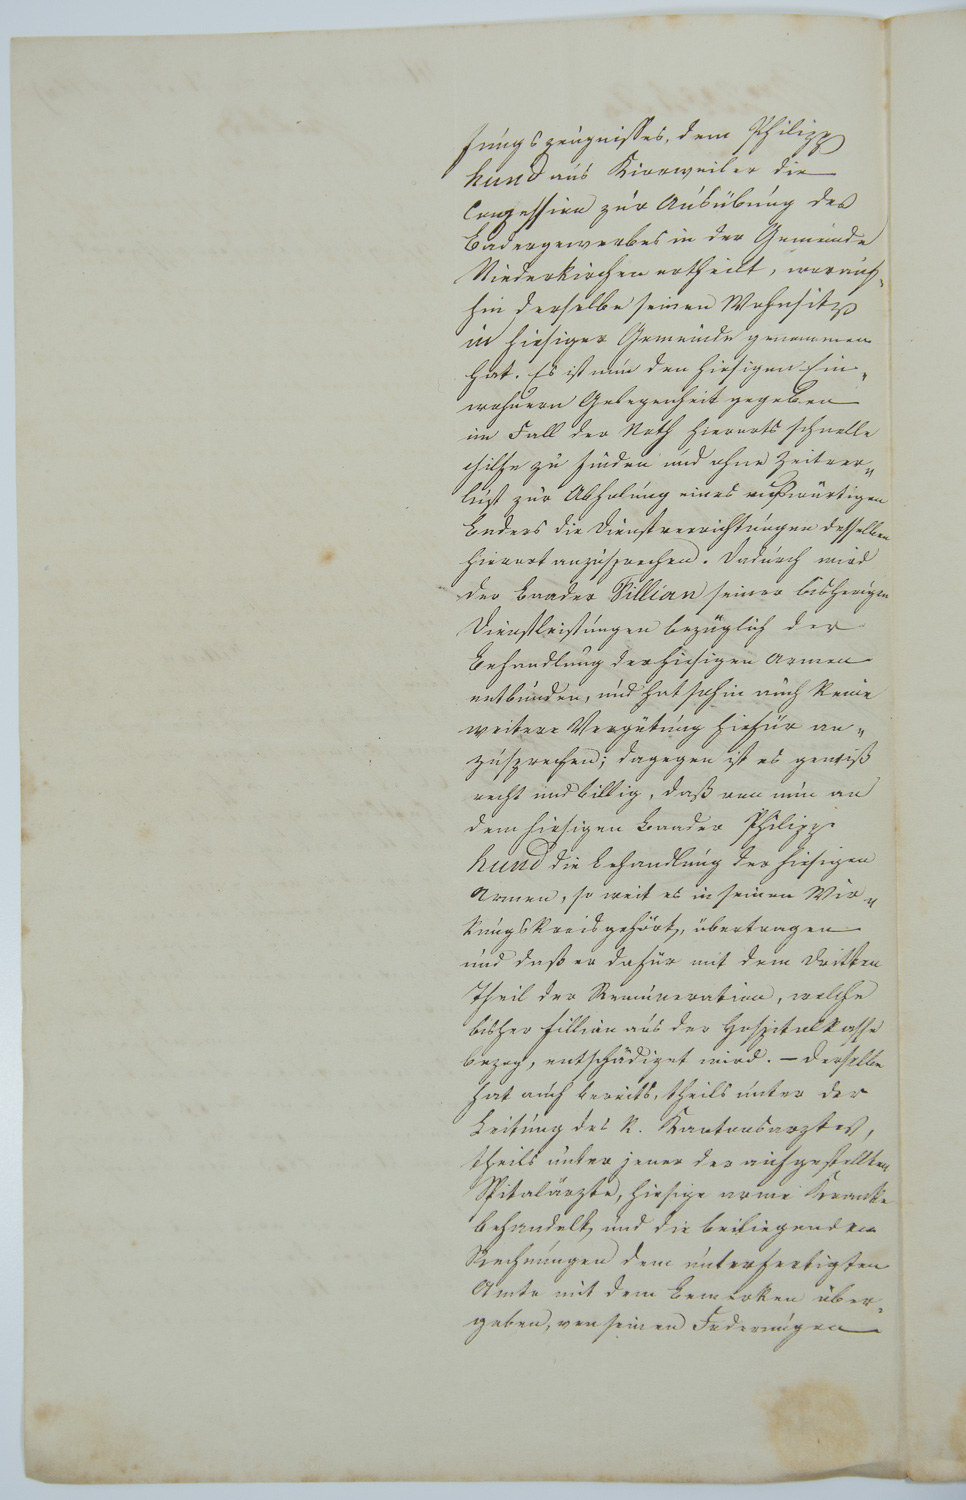 fungszeugnisses, dem Philipp
Hund aus Kirrweiler die
Conzession zur Ausübung des
Badergewerbes in der Gemeinde
Niederkirchen ertheilt, worauf-
hin derselbe seinen Wohnsitz
in hiesiger Gemeinde genommen
hat. Es ist nun den hiesigen Ein-
wohnern Gelegenheit gegeben
im Fall der Noth hierorts schnelle
Hilfe zu finden und ohne Zeitver-
lust zur Abholung eines auswärtigen
Baders die Dienstverrichtungen desselben
hierort anzusprechen. Dadurch wird
der Baader Fillian seiner bisherigen
Dienstleistungen bezüglich der
Behandlung der hiesigen Armen
entbunden, und hat sohin auch keine
weitere Vergütung hiefür an-
zusprechen; dagegen ist es gewiß
recht und billig, daß von nun an
dem hiesigen Baader Philipp
Hund die Behandlung der hiesigen
Armen, so weit es in seinen Wir-
kungskreis gehört, übertragen
und daß er dafür mit dem dritten
Theil der Remuneration, welche
bisher Fillian aus der Hospitalkasse
bezog, entschädiget wird. – Derselbe
hat auch bereits, theils unter der
Leitung des k. Kantonsarztes,
theils unter jener der aufgestellten
Spitalärzte, hiesige arme Kranke
behandelt, und die beiliegenden
Rechnungen dem unterfertigten
Amte mit dem Bemerken über-
geben, von seinen Foderungen